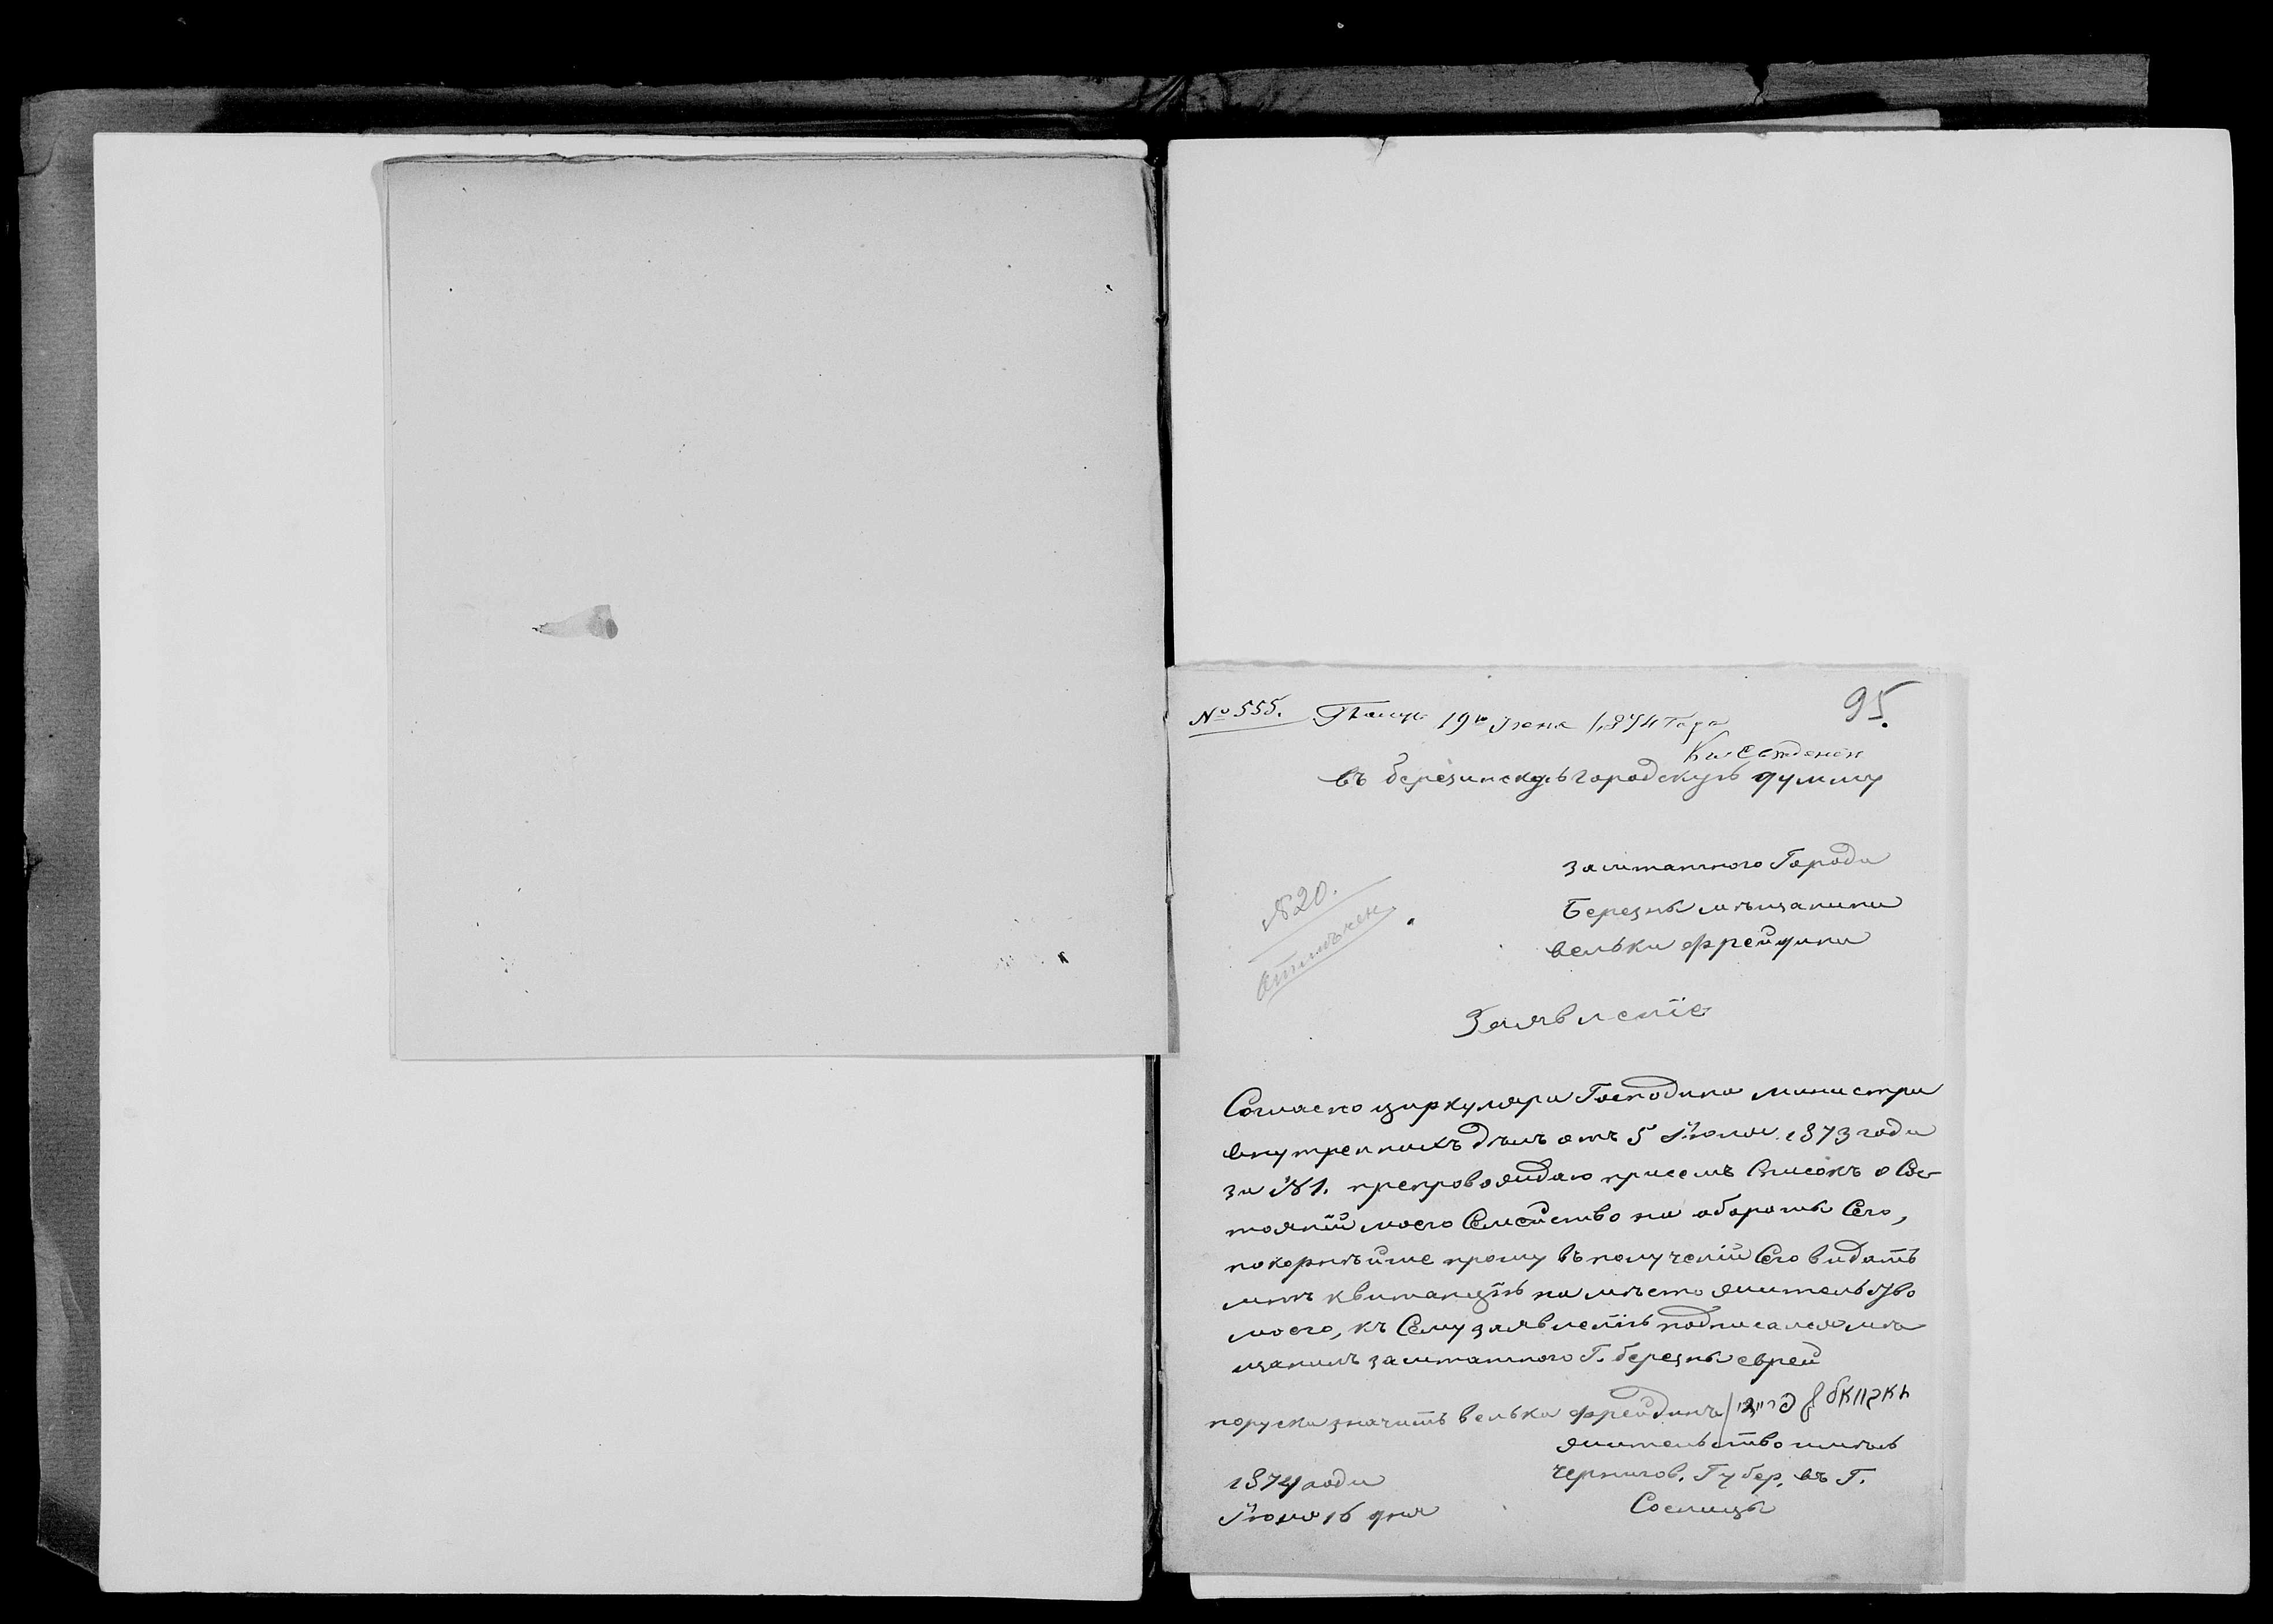 № 555. Получ. 19го Іюня 1874 года
95.
Къ Сведению
въ березинскуь городскуь думму
заштатного Города
Березны мѣщанина
вельки фрейдина
№ 20.
Отмѣчен.
Заявленіе
Согласно циркуляра Господина министра
внутренныхъ дѣлъ отъ 5 Іюлия 1873 года
за № 1. препровождаю присемъ Список о Сос-
тояніи моего Семейство на обороты Сего,
покорнѣйше прошу въ полученіи Сего видать
мнѣ квитанціь на мѣсто жительство
моего, къ Сему заявленіь подписался мѣ
щанинъ заштатного Г. березны еврей
поруски значить велька фрейдинъ
жительство имѣь
чернигов. Губер. въ Г.
Сосницы
1874 года
Іюня 16 дня